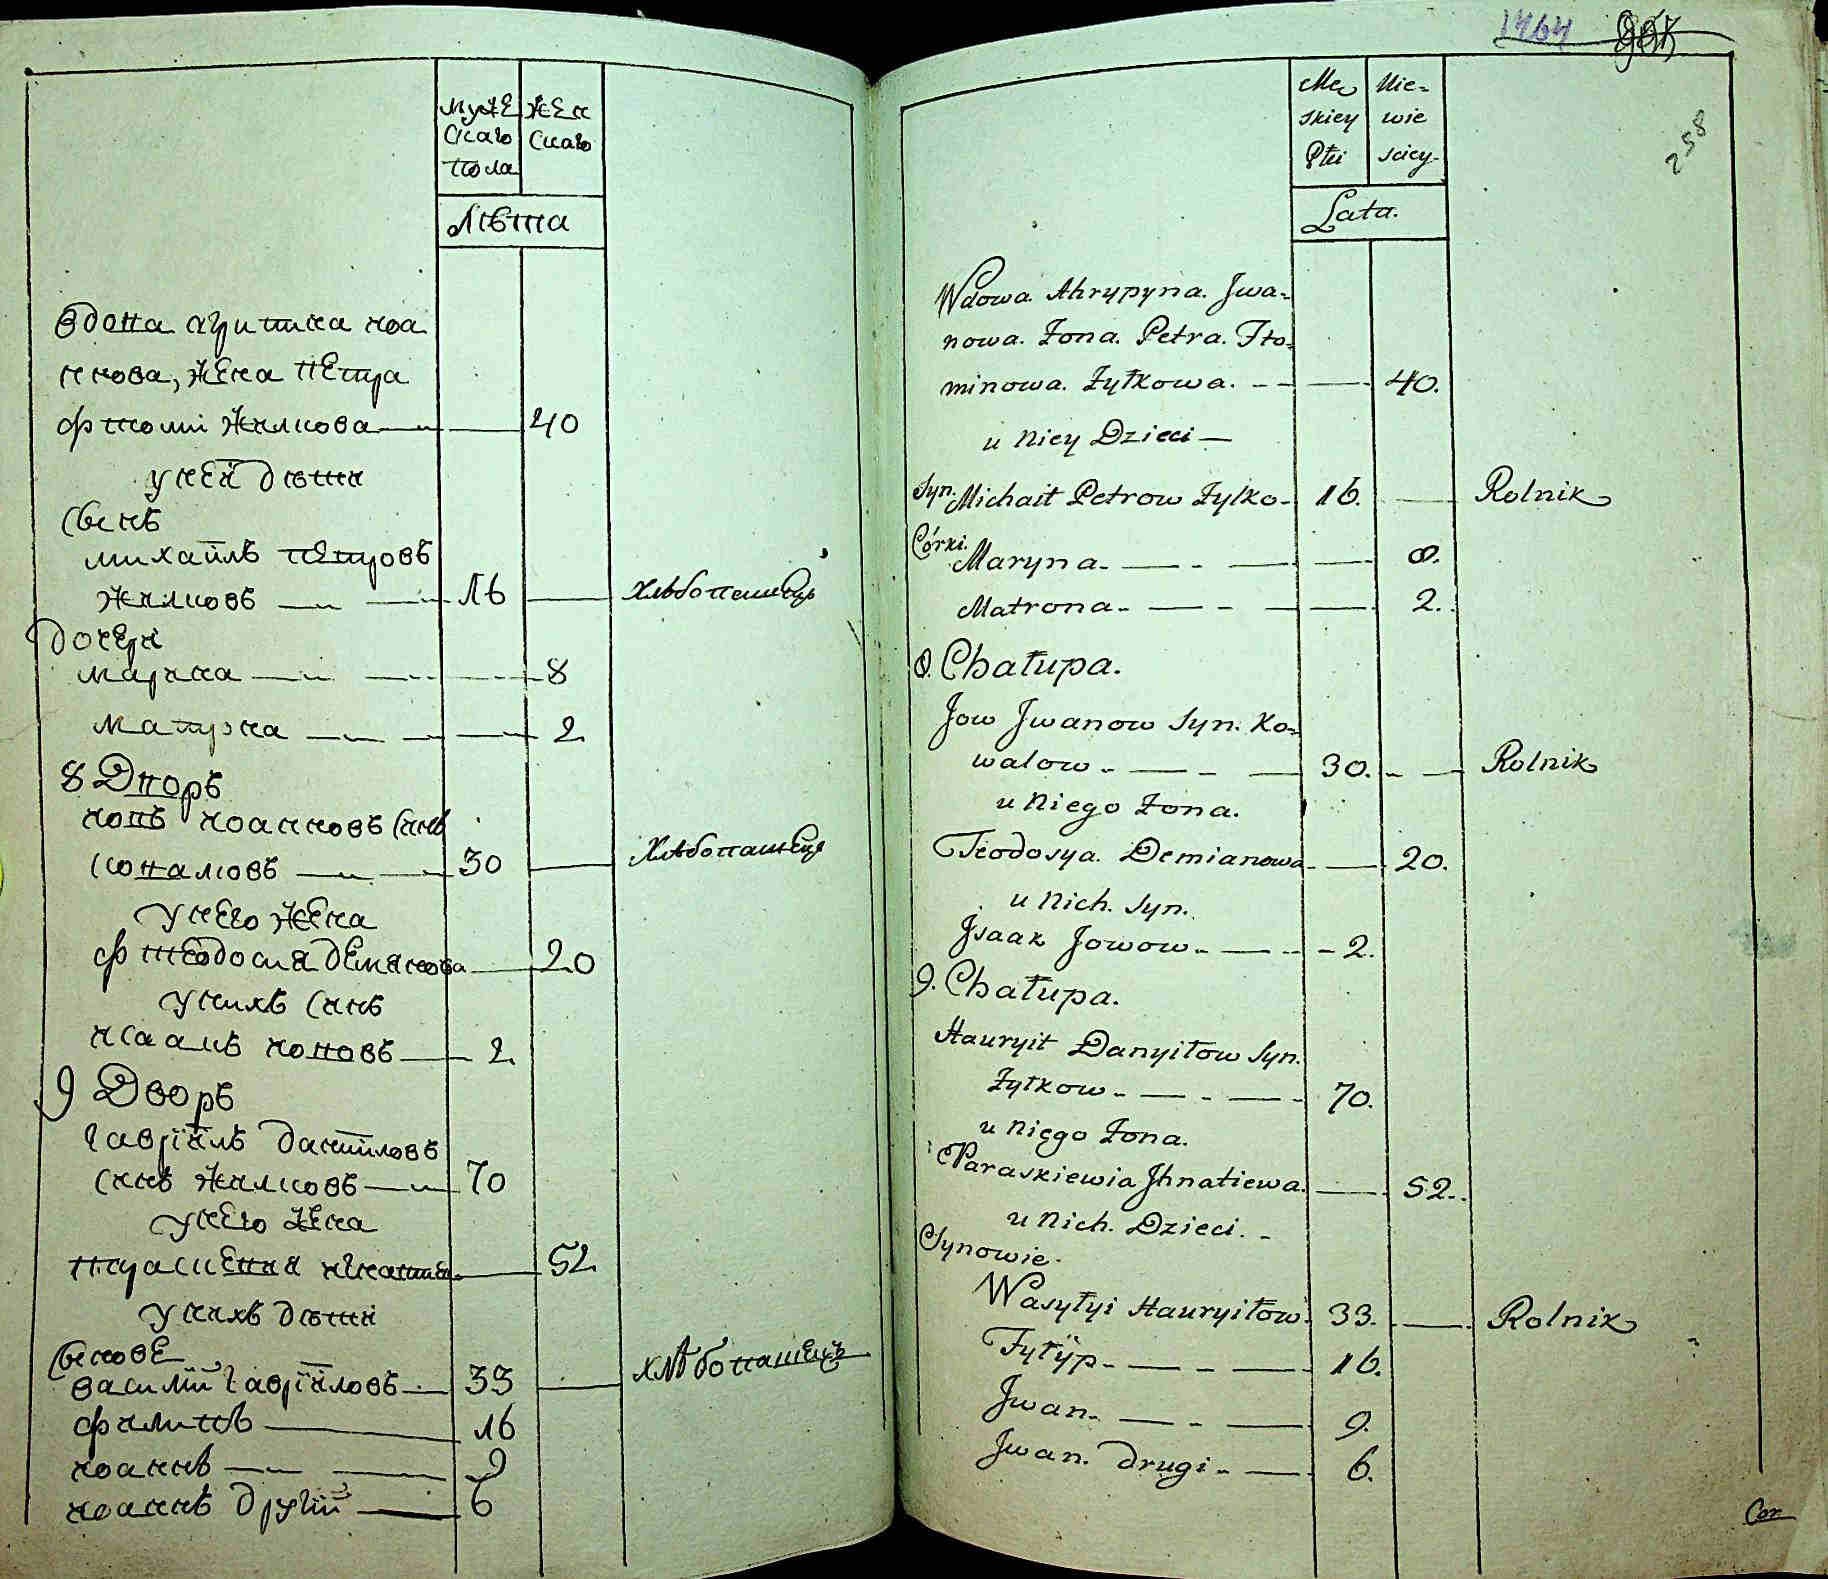 муже
скаго
пола
жен
скаго
Лѣта
вдова агрипина иоа
ннова, жена петра
фтоми жилкова 40
у ней дѣти
сынъ
михаилъ петровъ
жилковъ 16 хлѣбопашецъ
дочери
марина 8
матрона 2
8 Дворъ
иовъ иоанновъ синъ
ковалювъ 30 хлѣбопашецъ
у него жена
фтеодосия демянова 20
у нихъ синъ
исаакъ иововъ 2
9 Дворъ
гавріилъ даниловъ
синъ жилковъ 70
у него жена
параскевия игнатиева 52
у нихъ дѣти
сынове
василій гавріиловъ 33 хлѣбопашецъ
филипъ 16
иоаннъ 9
иоаннъ другій 6
1464
258
Mę
skiey
Płci
Nie=
wie
sciey
Lata.
Wdowa. Ahrypyna. Jwa=
nowa. Żona. Petra. Fto=
minowa. Żyłkowa. 40.
u Niey Dzieci
Syn. Michaił Petrow Żylko- 16. Rolnik
Córki.
Maryna. 8.
Matrona. 2.
8. Chałupa.
Jow Jwanow Syn. Ko=
walow 30. Rolnik
u Niego Żona.
Fteodosya. Demianowa 20.
u Nich. Syn.
Jsaak Jowow 2.
9. Chałupa.
Hauryił Danyiłow Syn.
Żyłkow 70.
u Niego Żona.
Paraskiewia Jhnatiewa. 52.
u Nich. Dzieci.
Synowie.
Wasyłyi Hauryiłow 33. Rolnik
Fyłyp 16.
Jwan. 9.
Jwan. drugi 6.